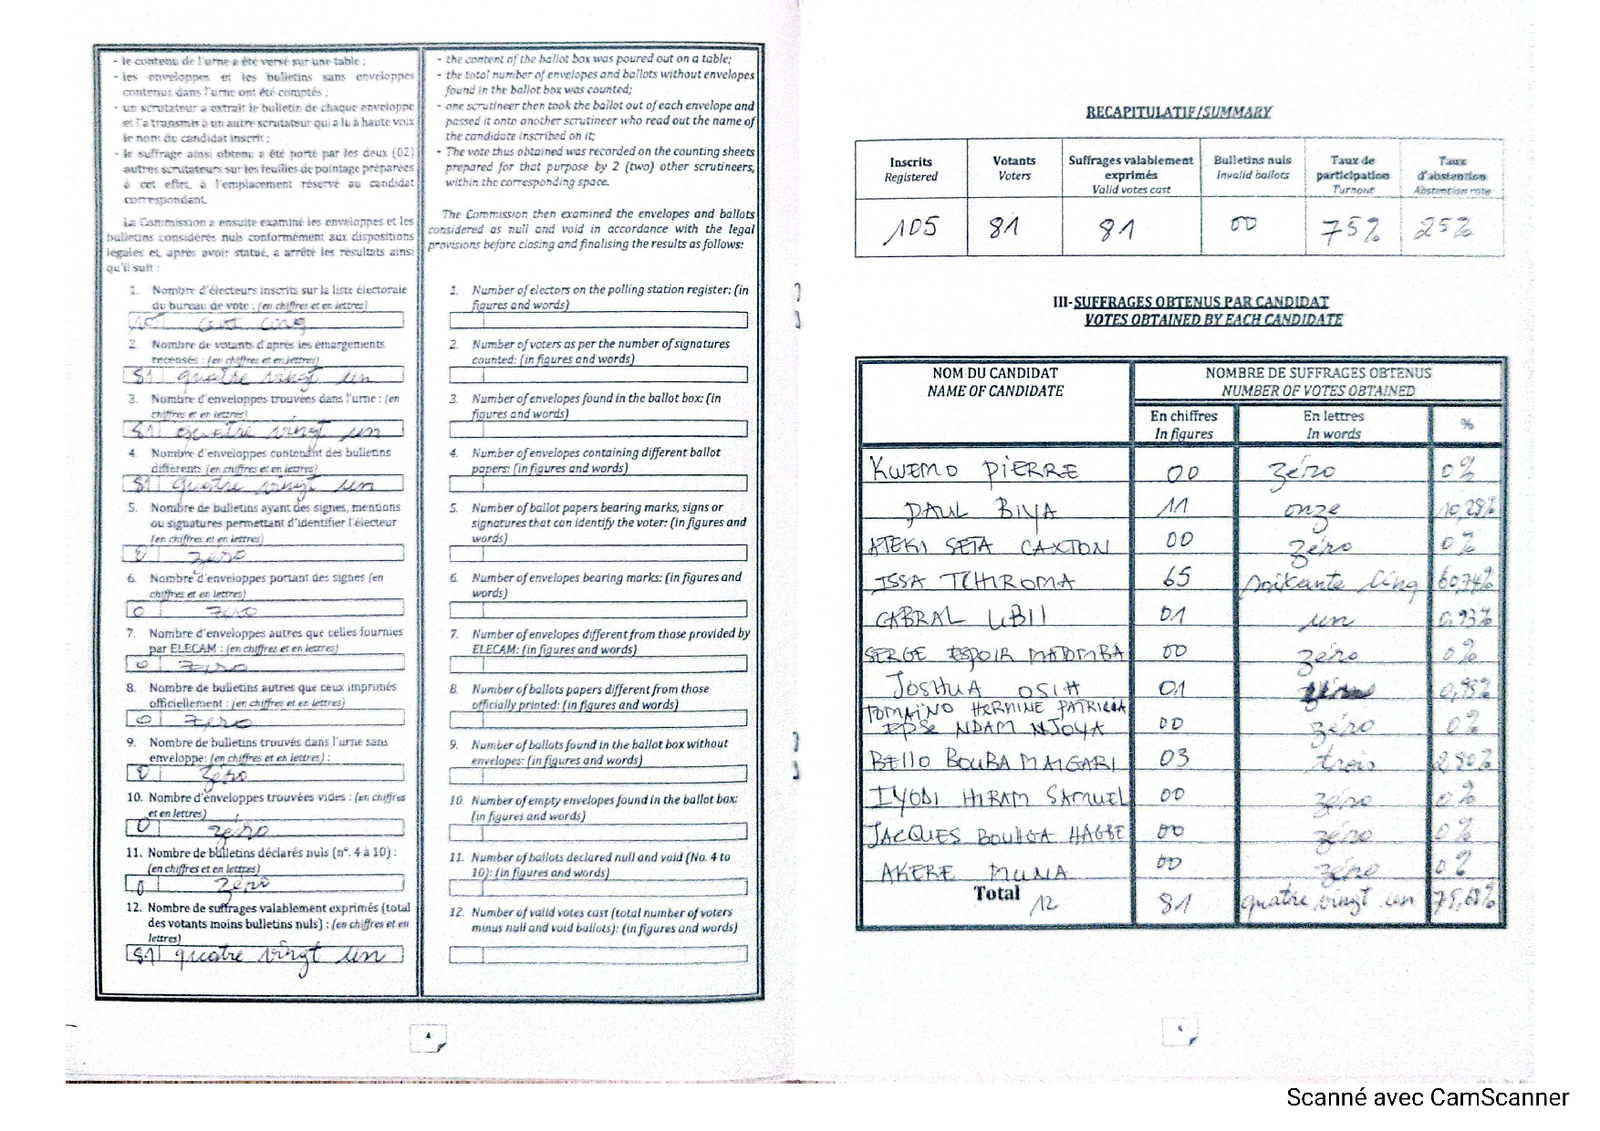 - le contenu de l'urne a été versé sur une table ;
- les enveloppes et les bulletins sans enveloppes
contenus dans l'urne ont été comptés ;
- un scrutateur a extrait le bulletin de chaque enveloppe
et l'a transmis à un autre scrutateur qui a lu à haute voix
le nom du candidat inscrit ;
- le suffrage ainsi obtenu a été porté par les deux (02)
autres scrutateurs sur les feuilles de pointage préparées
à cet effet, à l'emplacement réservé au candidat
correspondant.
La Commission a ensuite examiné les enveloppes et les
bulletins considérés nuls conformément aux dispositions
légales et, après avoir statué, a arrêté les résultats ainsi
qu'il suit :
1. Nombre d'électeurs inscrits sur la liste électorale
du bureau de vote : (en chiffres et en lettres)
105 cent cinq
2. Nombre de votants d'après les émargements
recensés : (en chiffres et en lettres)
81 quatre vingt un
3. Nombre d'enveloppes trouvées dans l'urne : (en
chiffres et en lettres)
81 quatre vingt un
4. Nombre d'enveloppes contenant des bulletins
différents (en chiffres et en lettres)
81 quatre vingt un
5. Nombre de bulletins ayant des signes, mentions
ou signatures permettant d'identifier l'électeur
(en chiffres et en lettres)
0 zéro
6. Nombre d'enveloppes portant des signes (en
chiffres et en lettres)
0 zéro
7. Nombre d'enveloppes autres que celles fournies
par ELECAM : (en chiffres et en lettres)
0 zéro
8. Nombre de bulletins autres que ceux imprimés
officiellement : (en chiffres et en lettres)
0 zéro
9. Nombre de bulletins trouvés dans l'urne sans
enveloppe: (en chiffres et en lettres) :
0 zéro
10. Nombre d'enveloppes trouvées vides : (en chiffres
et en lettres)
0 zéro
11. Nombre de bulletins déclarés nuls (n°. 4 à 10) :
(en chiffres et en lettres)
0 zéro
12. Nombre de suffrages valablement exprimés (total
des votants moins bulletins nuls) : (en chiffres et en
lettres)
81 quatre vingt un
- the content of the ballot box was poured out on a table;
- the total number of envelopes and ballots without envelopes
found in the ballot box was counted;
- one scrutineer then took the ballot out of each envelope and
passed it onto another scrutineer who read out the name of
the candidate inscribed on it;
- The vote thus obtained was recorded on the counting sheets
prepared for that purpose by 2 (two) other scrutineers,
within the corresponding space.
The Commission then examined the envelopes and ballots
considered as null and void in accordance with the legal
provisions before closing and finalising the results as follows:
1. Number of electors on the polling station register: (in
figures and words)
2. Number of voters as per the number of signatures
counted: (in figures and words)
3. Number of envelopes found in the ballot box: (in
figures and words)
4. Number of envelopes containing different ballot
papers: (in figures and words)
5. Number of ballot papers bearing marks, signs or
signatures that can identify the voter: (in figures and
words)
6. Number of envelopes bearing marks: (in figures and
words)
7. Number of envelopes different from those provided by
ELECAM: (in figures and words)
8. Number of ballots papers different from those
officially printed: (in figures and words)
9. Number of ballots found in the ballot box without
envelopes: (in figures and words)
10. Number of empty envelopes found in the ballot box:
(in figures and words)
11. Number of ballots declared null and void (No. 4 to
10): (in figures and words)
12. Number of valid votes cast (total number of voters
minus null and void ballots): (in figures and words)
4
RECAPITULATIF/SUMMARY
Inscrits Registered Votants Voters Suffrages valablement exprimés Valid votes cast Bulletins nuls Invalid ballots Taux de participation Turnout Taux d'abstention Abstention rate
105 81 81 00 75% 25%
III-SUFFRAGES OBTENUS PAR CANDIDAT
VOTES OBTAINED BY EACH CANDIDATE
NOM DU CANDIDAT NOMBRE DE SUFFRAGES OBTENUS
NAME OF CANDIDATE NUMBER OF VOTES OBTAINED
En chiffres En lettres %
In figures In words
KWEMO PIERRE 00 zéro 0%
PAUL BIYA 11 onze 10,28%
ATEKI SETA CAXTON 00 zéro 0%
ISSA TCHIROMA 65 soixante cinq 60,74%
CABRAL LIBII 01 un 0,93%
SERGE ESPOIR MATOMBA 00 zéro 0%
JOSHUA OSIH 01 0,93%
TOMAINO HERMINE PATRICIA
EPSE NDAM NJOYA 00 zéro 0%
BELLO BOUBA MAIGARI 03 trois 2,80%
IYODI HIRAM SAMUEL 00 zéro 0%
JACQUES BOUHGA HAGBE 00 zéro 0%
AKERE MUNA 00 zéro 0%
Total 12 81 quatre vingt un 75,68%
Scanné avec CamScanner